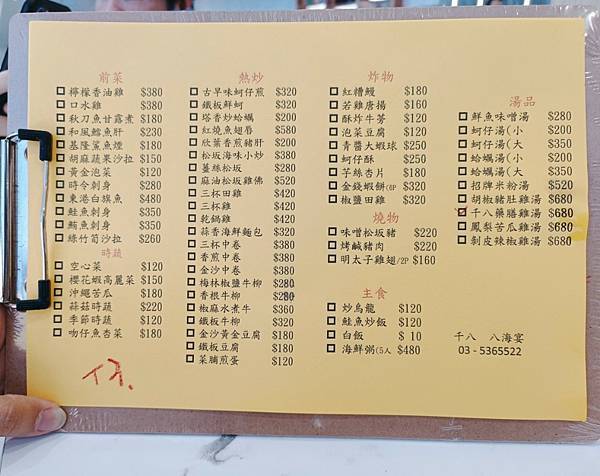 前菜
檸檬香油雞 $380
口水雞 $380
秋刀魚甘露煮 $180
和風鱈魚肝 $230
基隆鯊魚煙 $180
胡麻蔬果沙拉 $150
黃金泡菜 $120
時令刺身 $280
東港白旗魚 $480
鮭魚刺身 $350
鮪魚刺身 $350
綠竹筍沙拉 $260
時蔬
空心菜 $120
櫻花蝦高麗菜 $150
沖繩苦瓜 $180
蒜菇時蔬 $220
季節時蔬 $120
吻仔魚杏菜 $180
熱炒
古早味蚵仔煎 $320
鐵板鮮蚵 $320
塔香炒蛤蠣 $200
紅燒魚翅唇 $580
欣葉香煎豬肝 $200
松坂海味小炒 $380
薑絲松坂 $280
麻油松坂雞佛 $520
三杯田雞 $420
三杯雞 $420
乾鍋雞 $420
蒜香海鮮麵包 $320
三杯中卷 $380
香煎中卷 $380
金沙中卷 $380
梅林椒鹽牛柳 $280
香根牛柳 $280
椒麻水煮牛 $360
鐵板牛柳 $320
金沙黃金豆腐 $180
鐵板豆腐 $180
菜脯煎蛋 $120
炸物
紅糟鰻 $180
若雞唐揚 $160
酥炸牛蒡 $120
泡菜豆腐 $120
青醬大蝦球 $250
蚵仔酥 $250
芋絲杏片 $180
金錢蝦餅(6P $320
椒鹽田雞 $320
燒物
味噌松坂豬 $220
烤鹹豬肉 $220
明太子雞翅/2P $160
主食
炒烏龍 $120
鮭魚炒飯 $120
白飯 $ 10
海鮮粥(5人 $480
湯品
鮮魚味噌湯 $280
蚵仔湯(小 $200
蚵仔湯(大 $350
蛤蠣湯(小 $200
蛤蠣湯(大 $350
招牌米粉湯 $520
胡椒豬肚雞湯 $680
千八藥膳雞湯 $680
鳳梨苦瓜雞湯 $680
剝皮辣椒雞湯 $680
千八 八海宴
03 - 5365522